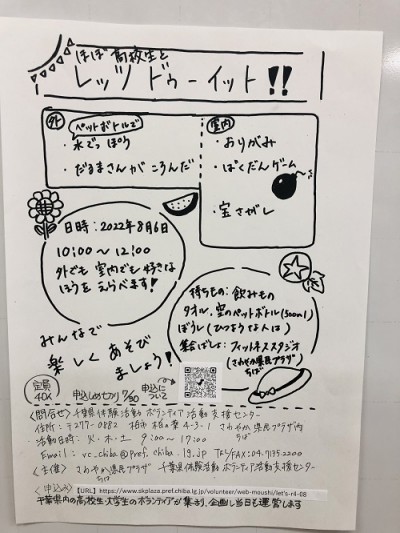 ほぼ高校生と
レッツ ドゥーイット!!
外 ペットボトルで
・水でっぽう
・だるまさんが ころんだ
室内
・おりがみ
・ばくだんゲーム
・宝さがし
日時：2022年8月6日
10:00〜12:00
外でも 室内でも 好きな
ほうを えらべます!
持ちもの：飲みもの
タオル、空のペットボトル(500ml)
ぼうし(ひつような人は)
集合ばしょ：フィットネススタジオ
(さわやかちば県民プラザ)
みんなで
楽しく あそび
ましょう!
定員 40人
申込しめきり 7/30
申込について
<問合せ> 千葉県体験活動 ボランティア活動 支援センター
住所：〒277-0882 柏市 柏の葉 4-3-1 さわやか ちば 県民 プラザ内
活動日時： 火・木・土 9:00〜17:00
Email： vc_chiba@pref.chiba.lg.jp TEL/FAX:04.7135.2200
<主催> さわやか ちば 県民プラザ 千葉県体験活動 ボランティア活動支援センター
<申込み> 【URL】https://www.skplaza.pref.chiba.lg.jp/volunteer/web-moushi/let's-r4-08
千葉県内の高校生・大学生のボランティアが集まり、企画し当日も運営します